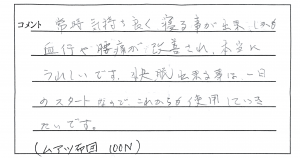 コメント 常時気持ち良く寝る事が出来、しかも
血行や腰痛が改善され、本当に
うれしいです。快眠出来る事は、一日
のスタートなので、これからも使用していき
たいです。
(ムアツ布団 100N)